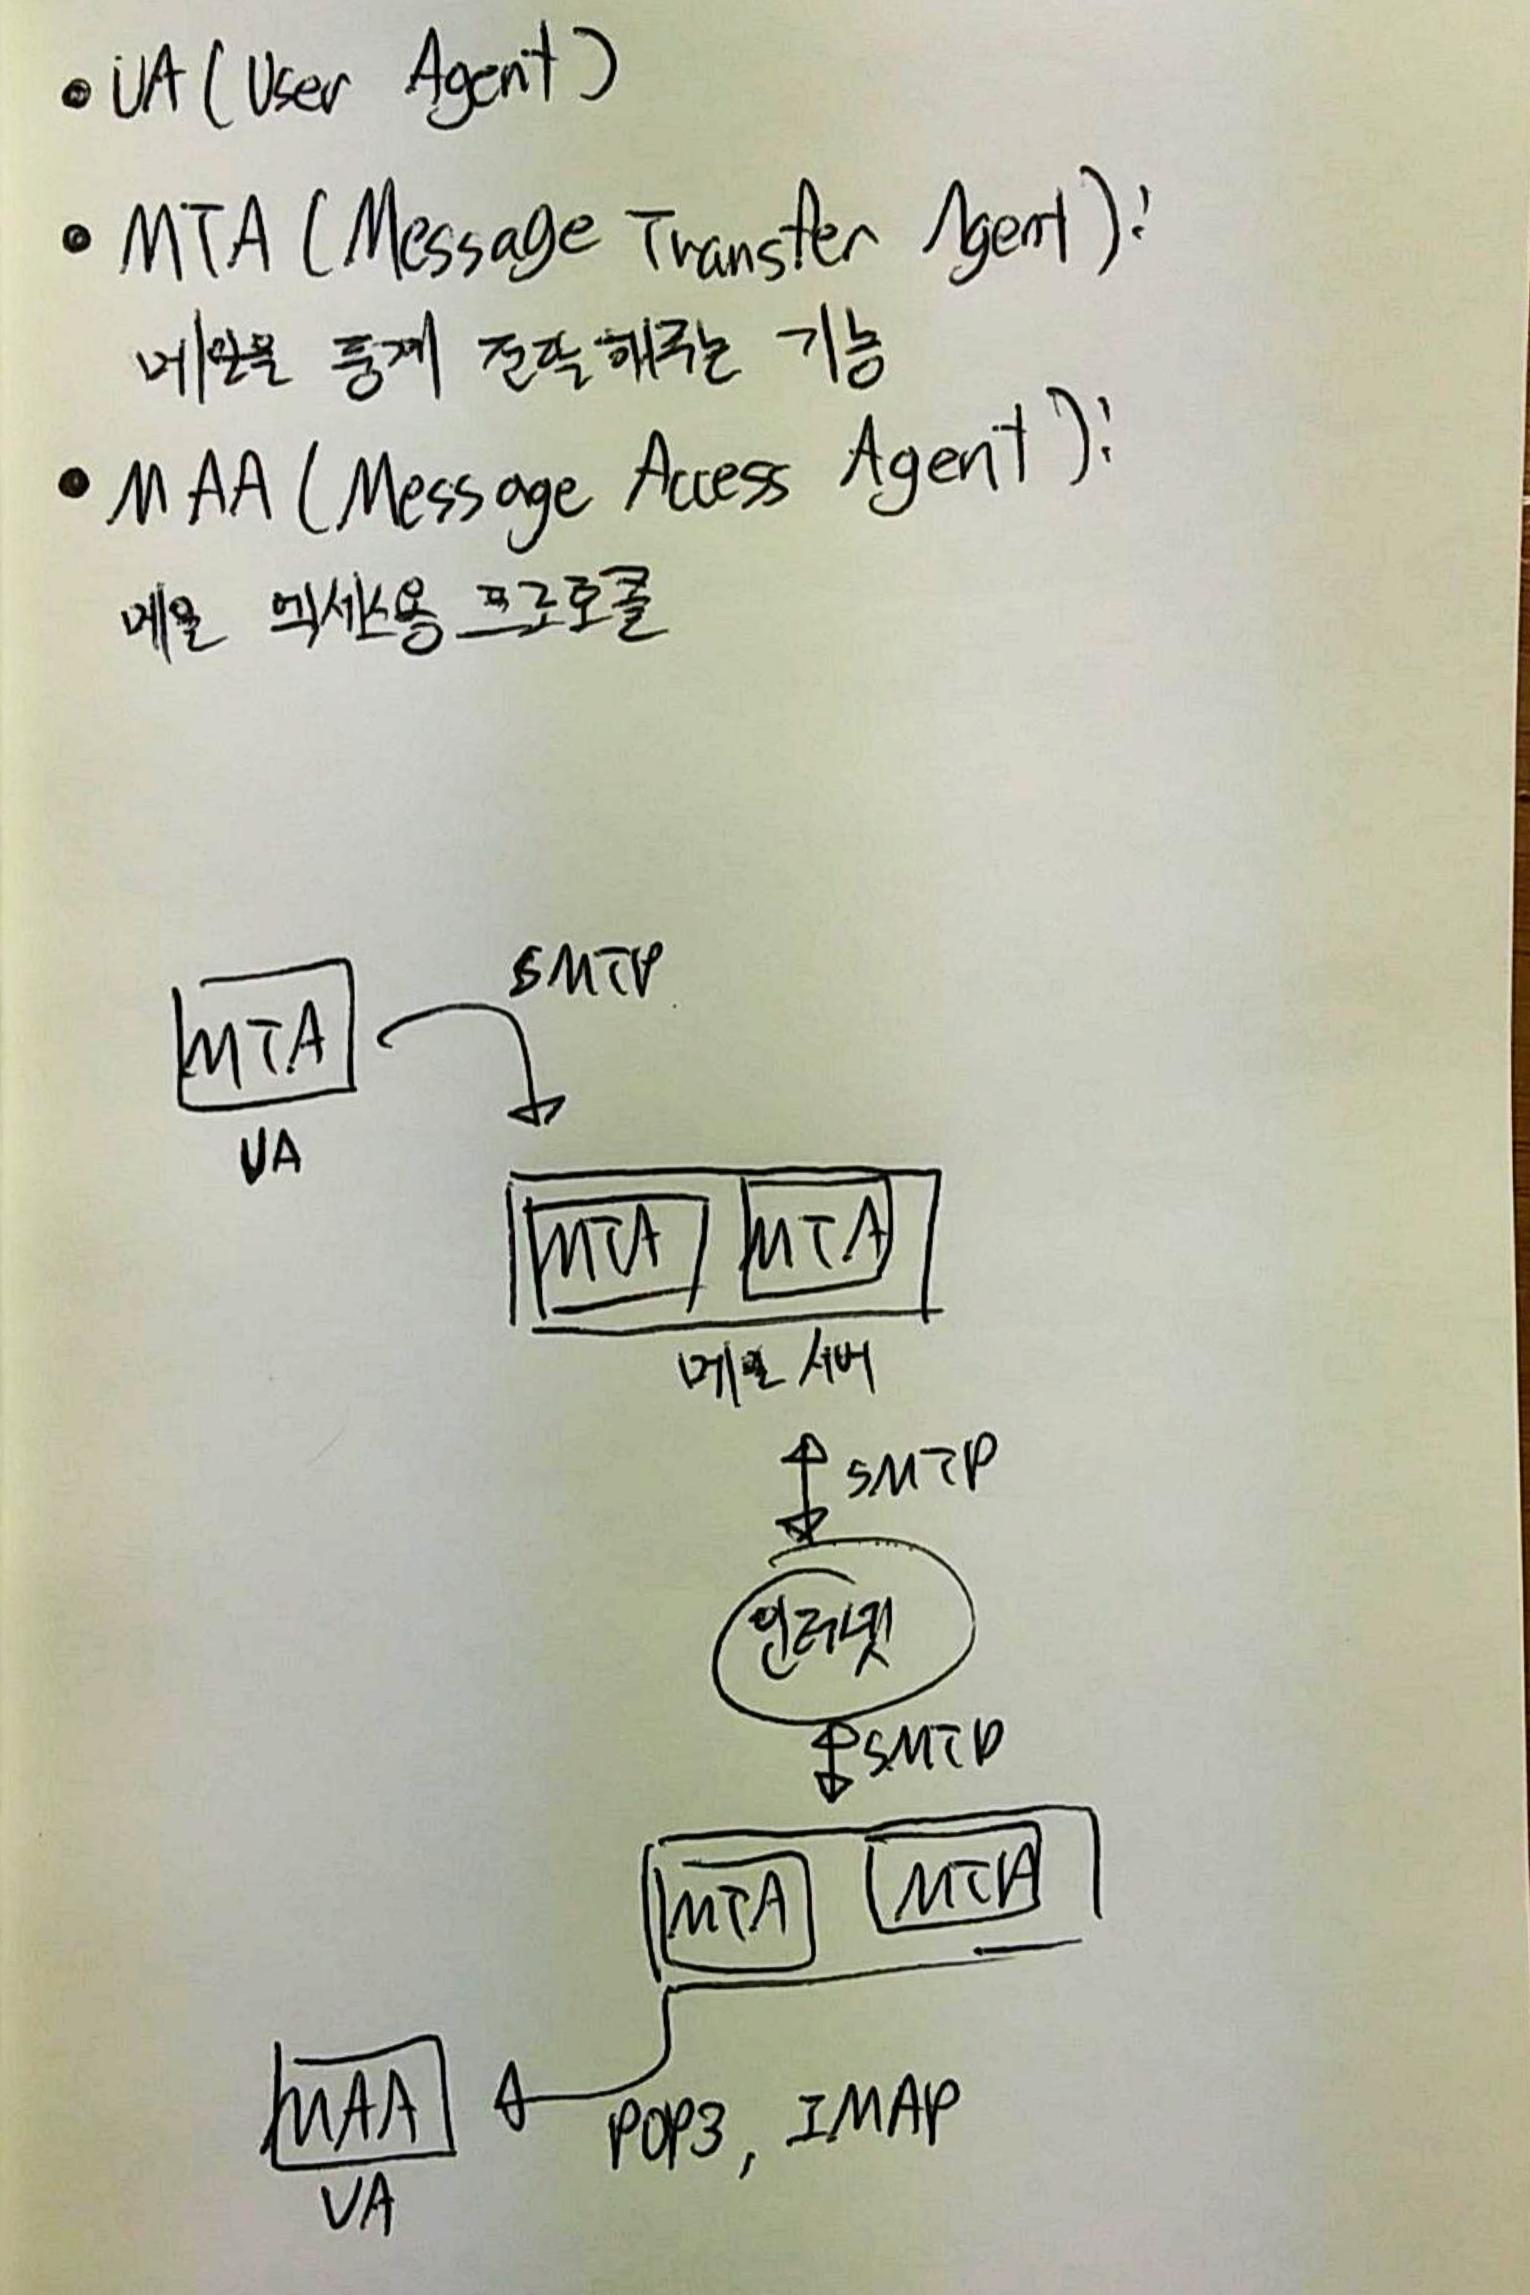 • UA ( User Agent )
• MTA ( Message Transfer Agent ):
메일을 중계 전달해주는 기능
• MAA ( Message Access Agent ):
메일 엑세스용 프로토콜
SMTP
MTA
UA
MTA MTA
메일 서버
SMTP
인터넷
SMTP
MTA MTA
MAA
POP3, IMAP
UA